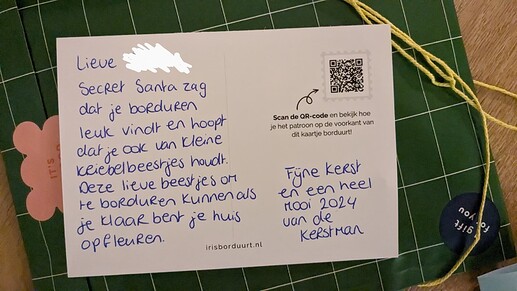 Lieve
Secret Santa zag
dat je borduren
leuk vindt en hoopt
dat je ook van kleine
kriebelbeestjes houdt.
Deze lieve beestjes om
te borduren kunnen als
je klaar bent je huis
opfleuren.
Scan de QR-code en bekijk hoe
je het patroon op de voorkant van
dit kaartje borduurt!
Fijne Kerst
en een heel
mooi 2024
van de
Kerstman
irisborduurt.nl
IT'S
a gift
for you